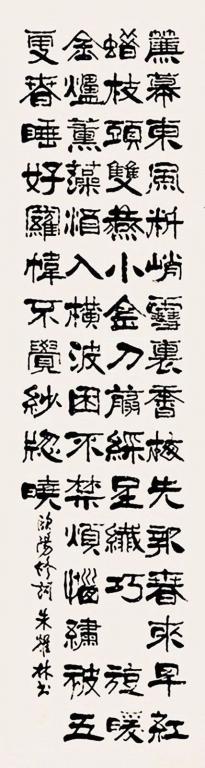 簾幕東風料峭雪裏香梅先報春來早紅
蠟枝頭雙燕小金刀剪綵呈纖巧 旋暖
金爐薰藻酒入橫波困不禁煩惱繡被五
更春睡好羅幃不覺紗窗曉 歐陽修詞 朱耀林書